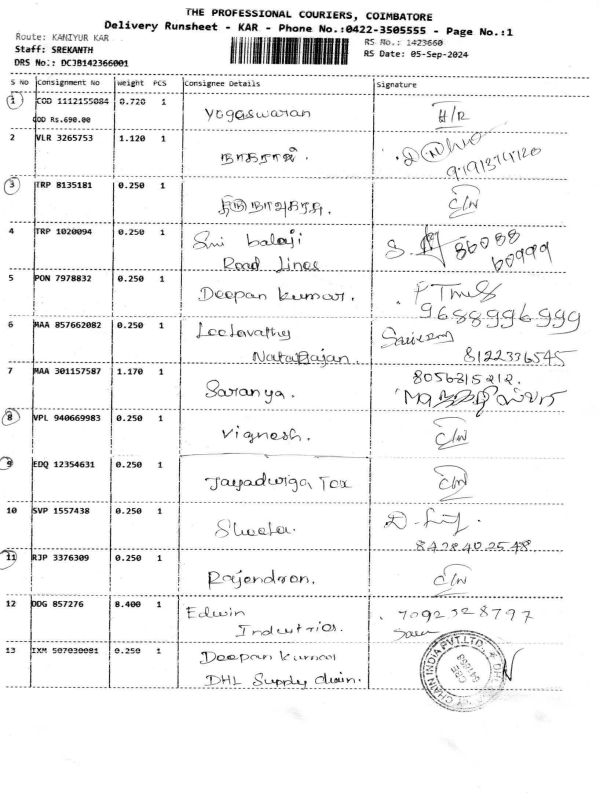 THE PROFESSIONAL COURIERS, COIMBATORE
Delivery Runsheet - KAR - Phone No.:0422-3505555 - Page No.:1
Route: KANIYUR KAR
RS No.: 1423660
Staff: SREKANTH
RS Date: 05-Sep-2024
DRS No.: DCJB142366001
S No Consignment No weight PCS Consignee Details Signature
1 COD 1112155084 0.720 1 Yogaswaran H/R
COD Rs.690.00
2 VLR 3265753 1.120 1 நாகராஜ். 9191374120
3 TRP 8135181 0.250 1 C/N
4 TRP 1020094 0.250 1 Sri balaji
Road Lines 86088
60999
5 PON 7978832 0.250 1 Deepan kumar.
9688996999
6 MAA 857662082 0.250 1 Leelavathy
Natarajan. 8122336545
7 MAA 301157587 1.170 1 Saranya. 8056815212.
8 VPL 940669983 0.250 1 Vignesh. C/N
9 EDQ 12354631 0.250 1 Jayadurga Tex C/N
10 SVP 1557438 0.250 1 Shweta.
8428402548
11 RJP 3376309 0.250 1 Rajendran. C/N
12 DDG 857276 8.400 1 Edwin
Industries. 7092528797
13 IXM 507030081 0.250 1 Deepan kumar
DHL Supply chain.
CHAIN INDIA PVT.LTD. * DHL
CBE